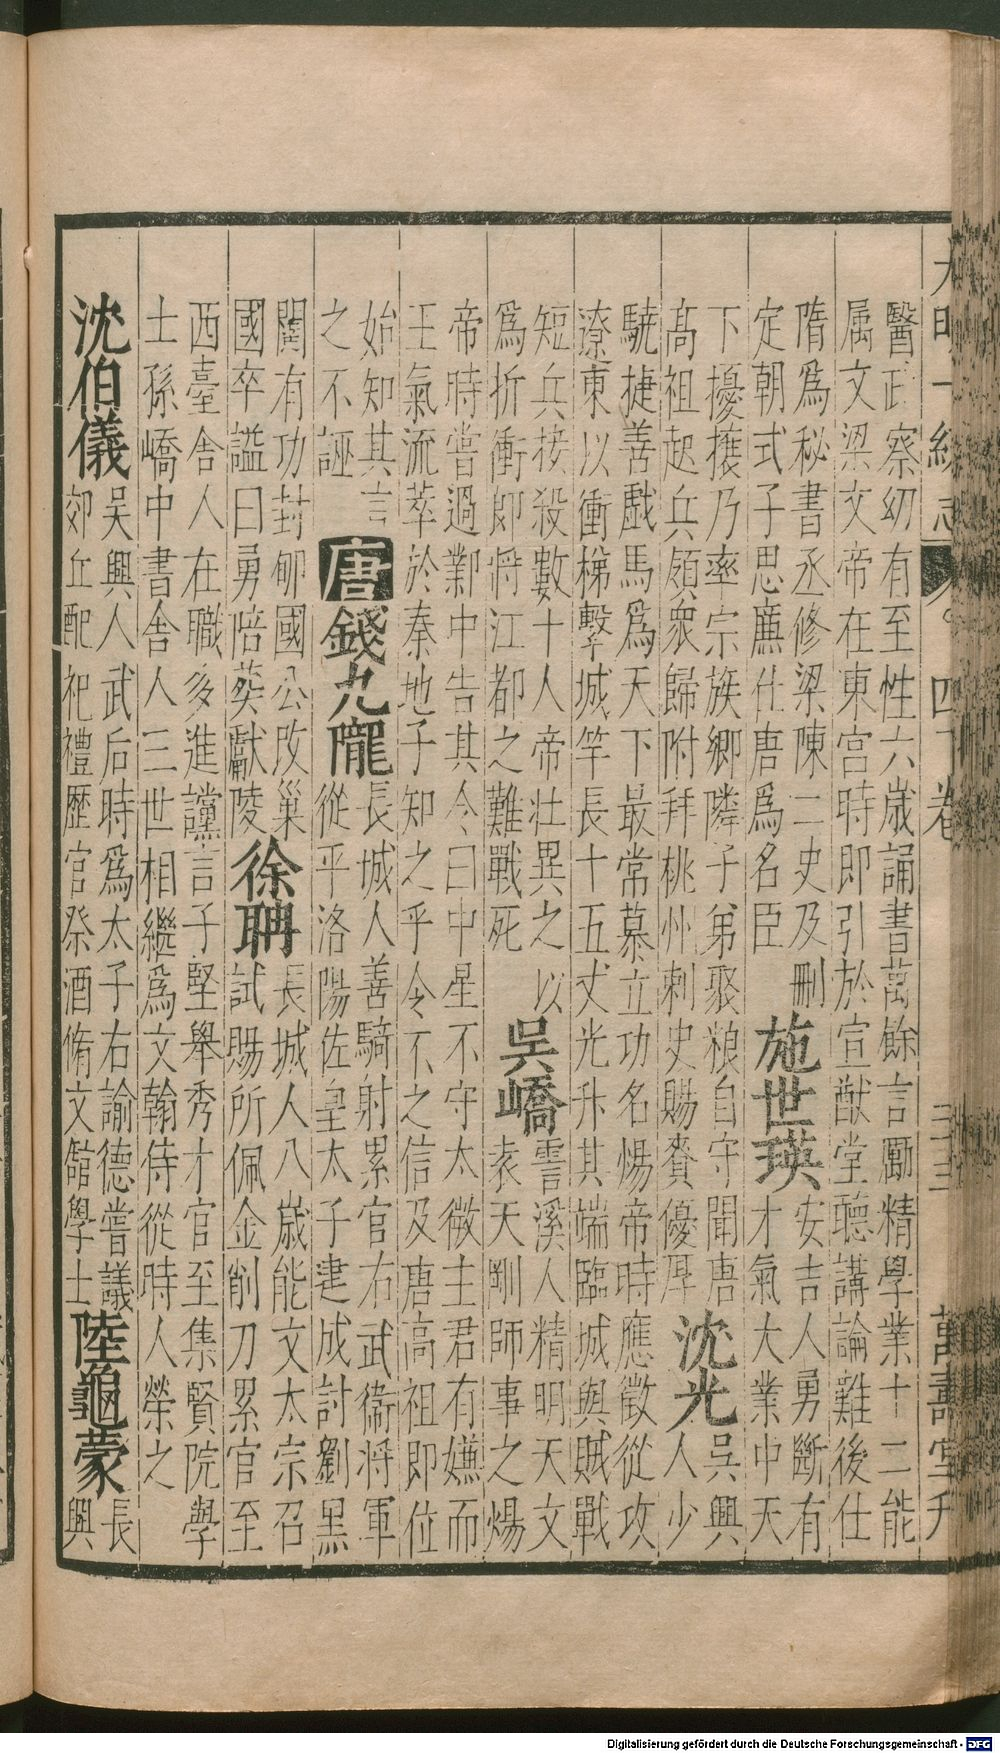 大明一統志 四下卷 三十三 萬壽堂刋
醫武察幼有至性六歲誦書萬餘言勵精學業十二能
屬文梁文帝在東宮時即引於宣猷堂聽講論難後仕
隋爲秘書丞修梁陳二史及刪
定朝式子思廉仕唐爲名臣
施世瑛
安吉人勇斷有
才氣大業中天
下擾攘乃率宗族鄉隣子弟聚粮自守聞唐
高祖起兵領衆歸附拜桃州刺史賜賚優厚
沈光
吳興
人少
驍捷善戲馬爲天下最常慕立功名煬帝時應徵從攻
遼東以衝梯擊城竿長十五丈光升其端臨城與賊戰
短兵接殺數十人帝壯異之以
爲折衝郎將江都之難戰死
吳嶠
霅溪人精明天文
袁天剛師事之煬
帝時嘗過鄴中告其令曰中星不守太微主君有嫌而
王氣流萃於秦地子知之乎令不之信及唐高祖即位
始知其言
之不誣
唐
錢九隴
長城人善騎射累官右武衛將軍
從平洛陽佐皇太子建成討劉黑
闥有功封郇國公改巢
國卒謚曰勇陪葬獻陵
徐聃
長城人八歲能文太宗召
試賜所佩金削刀累官至
西臺舍人在職多進讜言子堅舉秀才官至集賢院學
士孫嶠中書舍人三世相繼爲文翰侍從時人榮之
沈伯儀
吳興人武后時爲太子右諭德嘗議
郊丘配祀禮歷官祭酒脩文舘學士
陸龜蒙
長
興